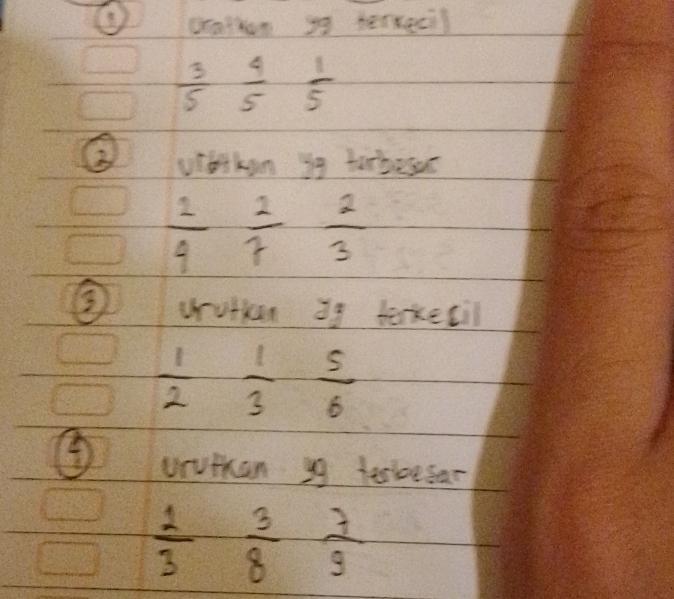 1 uratkan yg terkecil
3/5 4/5 1/5
2 urutkan yg terbesar
2/4 2/7 2/3
3 urutkan yg terkecil
1/2 1/3 5/6
4 urutkan yg terbesar
2/3 3/8 7/9